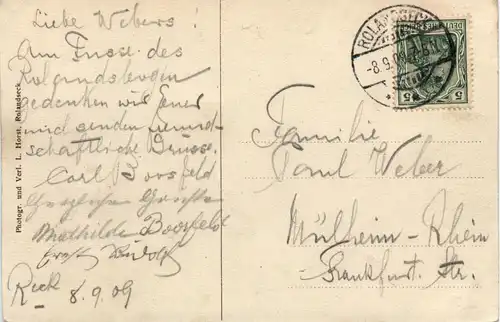 Liebe Webers!
Am Fusse des
Rolandsbogen
gedenken wir Euer
und senden freund-
schaftliche Grüsse.
Carl Boosfeld
Herzlichen Grüsse
Mathilde Boosfeld
Ernst Rudolf
8.9.09
Photogr. und Verl. L. Horst, Rolandseck
ROLANDSECK
-8.9.09
5 5
Familie
Paul Weber
Mülheim-Rhein
Frankfurt. Str.